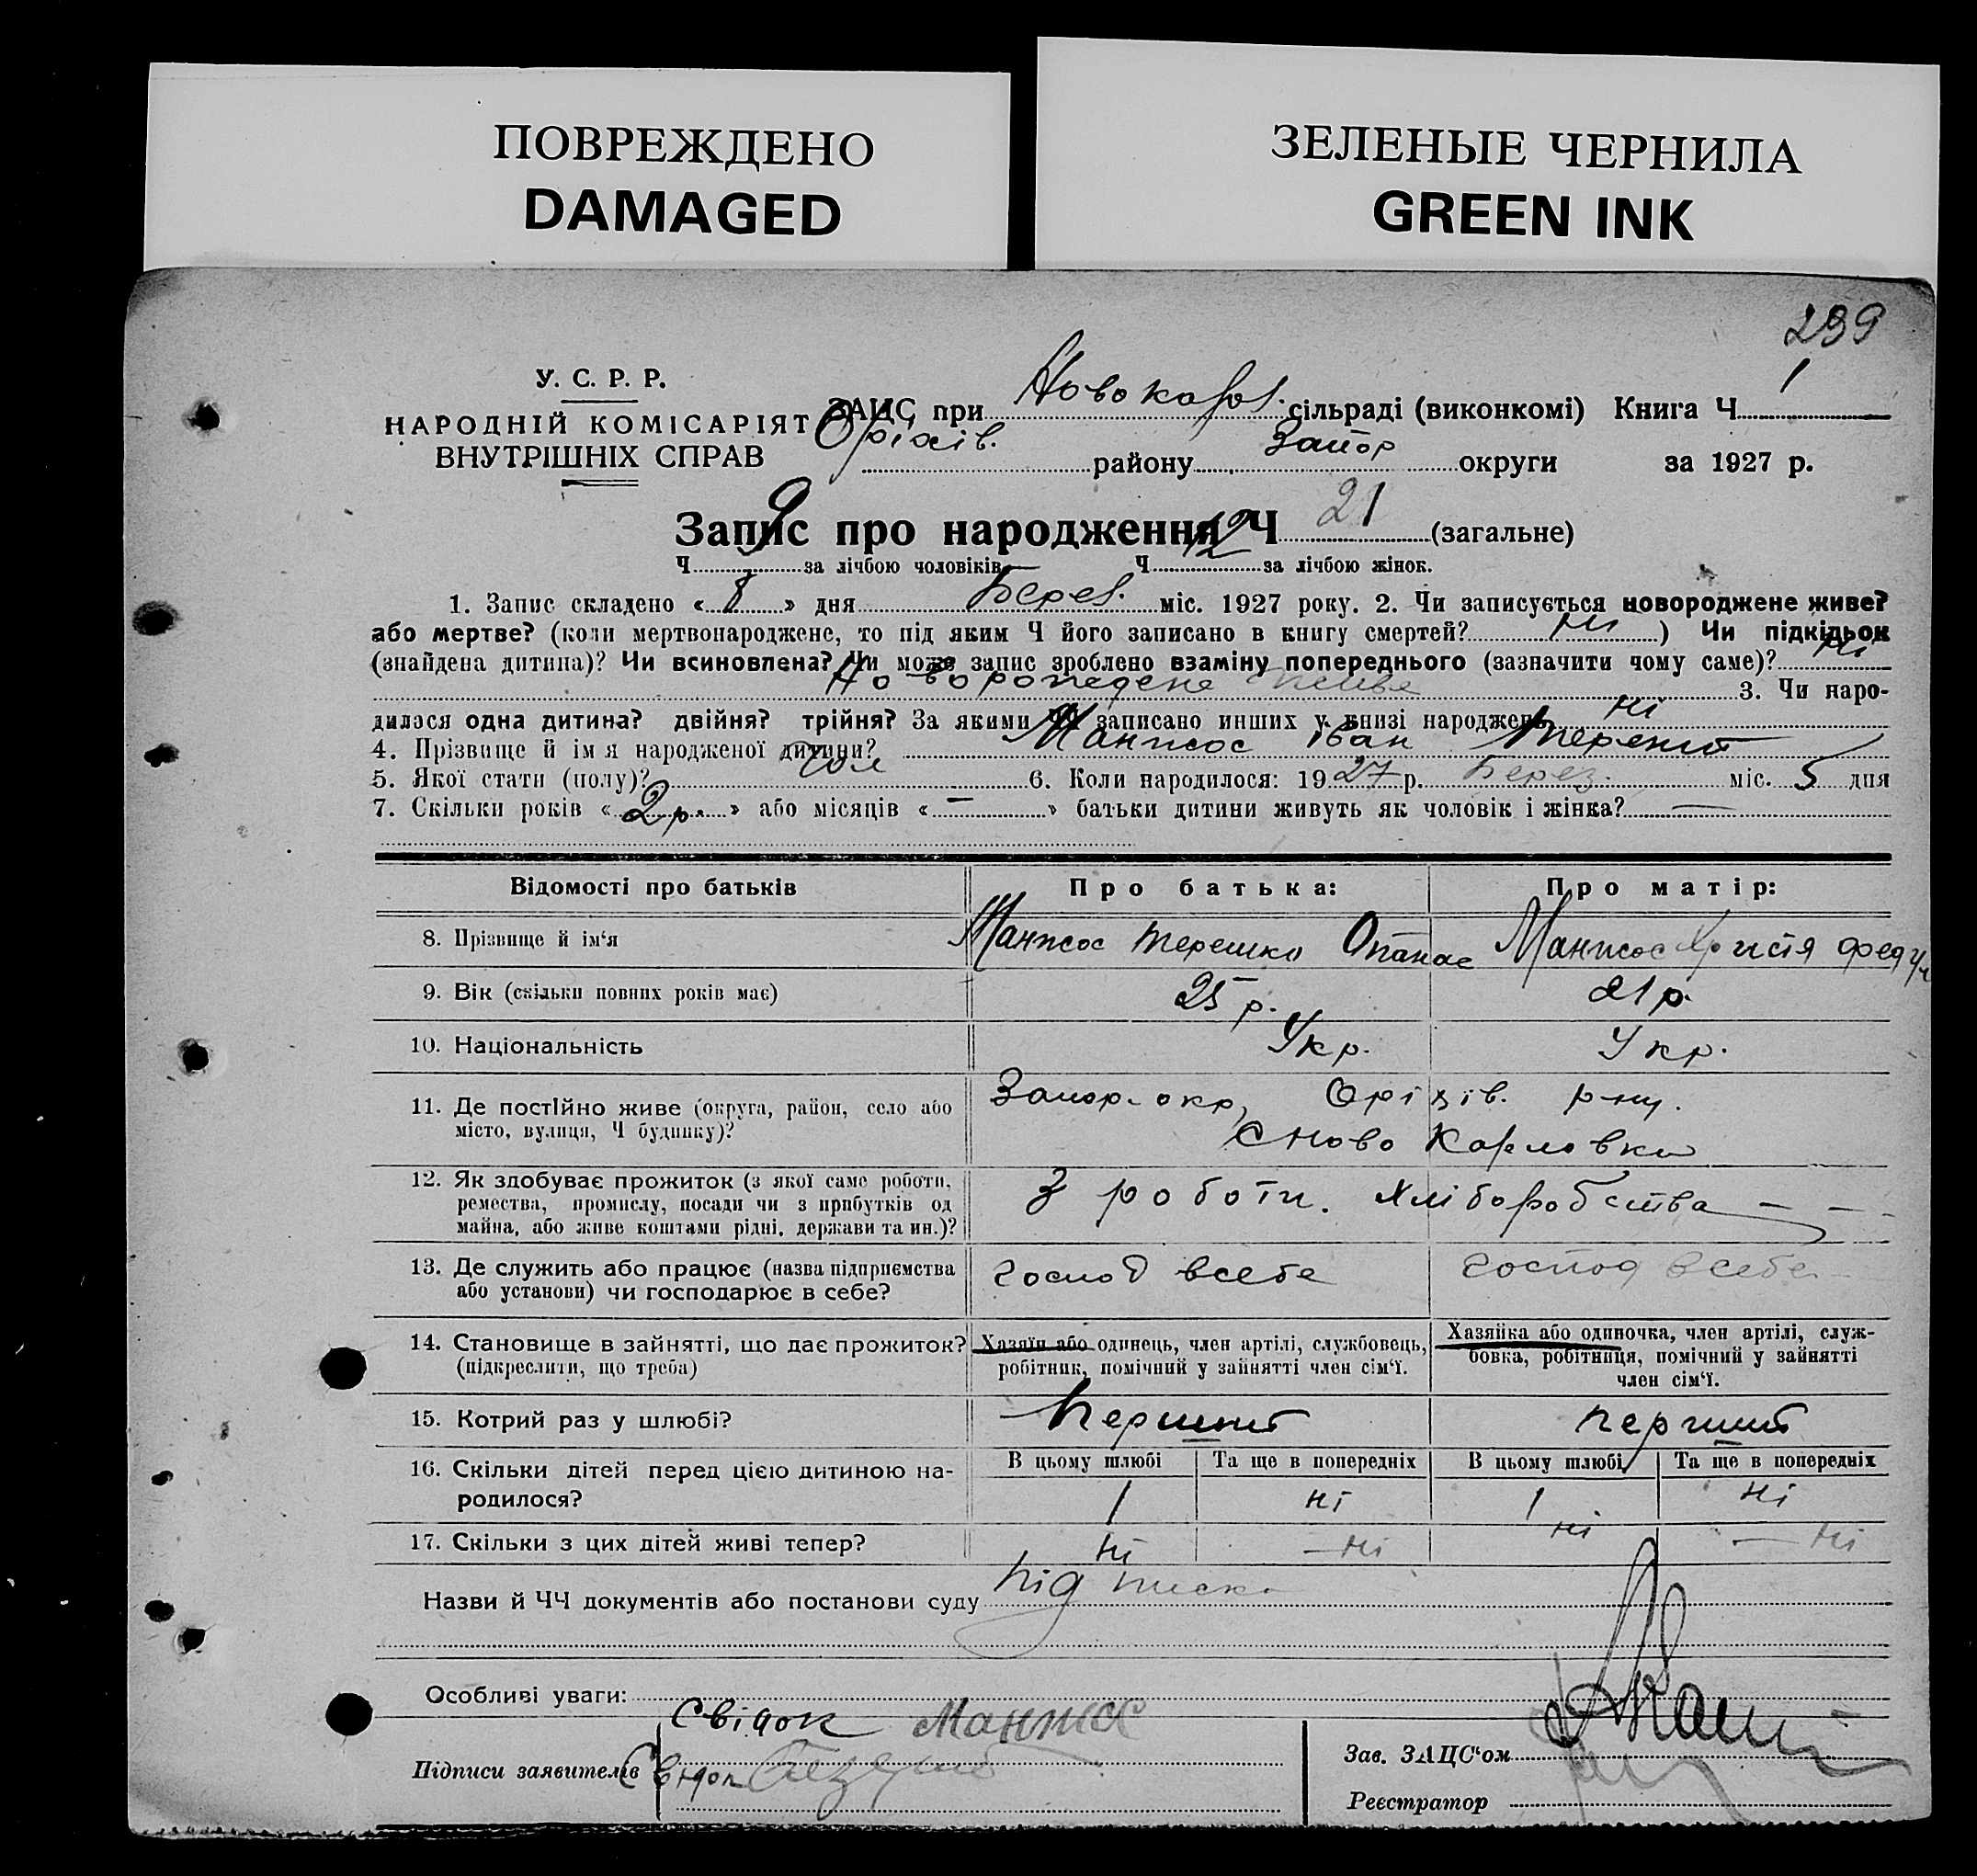 ПОВРЕЖДЕНО
DAMAGED
ЗЕЛЕНЫЕ ЧЕРНИЛА
GREEN INK
239
У. С. Р. Р.
НАРОДНІЙ КОМІСАРІЯТ
ВНУТРІШНІХ СПРАВ
ЗАЦС при Новокарл. сільраді (виконкомі) Книга Ч 1
Оріхів. району Запор округи за 1927 р.
Запис про народження Ч 21 (загальне)
Ч 9 за лічбою чоловіків Ч 12 за лічбою жінок.
1. Запис складено « 8 » дня Берез. міс. 1927 року. 2. Чи записується новороджене живе?
або мертве? (коли мертвонароджене, то під яким Ч його записано в книгу смертей? ні ) Чи підкідьок
(знайдена дитина)? Чи всиновлена? Чи може запис зроблено взаміну попереднього (зазначити чому саме)? ні
Новорожедене живе 3. Чи наро-
дилася одна дитина? двійня? трійня? За якими ЧЧ записано инших у книзі народжень ні
4. Прізвище й ім'я народженої дитини? Манжос Іван Терент
5. Якої стати (полу)? чол 6. Коли народилося: 1927 р. Берез. міс. 5 дня
7. Скільки років « 2 р. » або місяців « — » батьки дитини живуть як чоловік і жінка? —
Відомості про батьків Про батька: Про матір:
8. Прізвище й ім'я Манжос Терешко Опанас Манжос Христя
9. Вік (скільки повних років має) 25 р. 21 р.
10. Національність Укр. Укр.
11. Де постійно живе (округа, район, село або
місто, вулиця, Ч будинку)?
Запор. окр, Оріхів. р-ну.
с Ново Карловки
12. Як здобуває прожиток (з якої саме роботи,
ремества, промислу, посади чи з прибутків од
майна, або живе коштами рідні, держави та ин.)?
З роботи. хліборобства — — -
13. Де служить або працює (назва підприємства
або установи) чи господарює в себе?
господ всебе господ всебе
14. Становище в зайнятті, що дає прожиток?
(підкреслити, що треба)
Хазяїн або одинець, член артілі, службовець,
робітник, помічний у зайнятті член сім'ї.
Хазяйка або одиночка, член артілі, служ-
бовка, робітниця, помічний у зайнятті
член сім'ї.
15. Котрий раз у шлюбі? Перший перший
16. Скільки дітей перед цією дитиною на-
родилося?
В цьому шлюбі Та ще в попередніх В цьому шлюбі Та ще в попередніх
1 ні 1 ні
17. Скільки з цих дітей живі тепер? ні — ні ні — ні
Назви й ЧЧ документів або постанови суду підписка
Особливі уваги:
Підписи заявителів
Свідок Манжос
Свідок
Зав. ЗАЦС'ом
Реєстратор